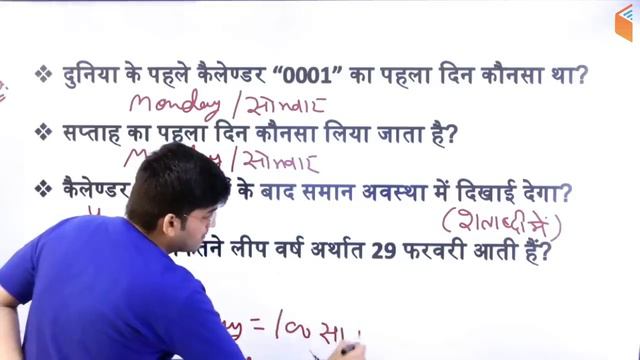 ❖ दुनिया के पहले कैलेण्डर “0001” का पहला दिन कौनसा था?
Monday / सोमवार
❖ सप्ताह का पहला दिन कौनसा लिया जाता है?
/ सोमवार
❖ कैलेण्डर के बाद समान अवस्था में दिखाई देगा?
(शताब्दी में)
लीप वर्ष अर्थात 29 फरवरी आती हैं?
= 100 सा